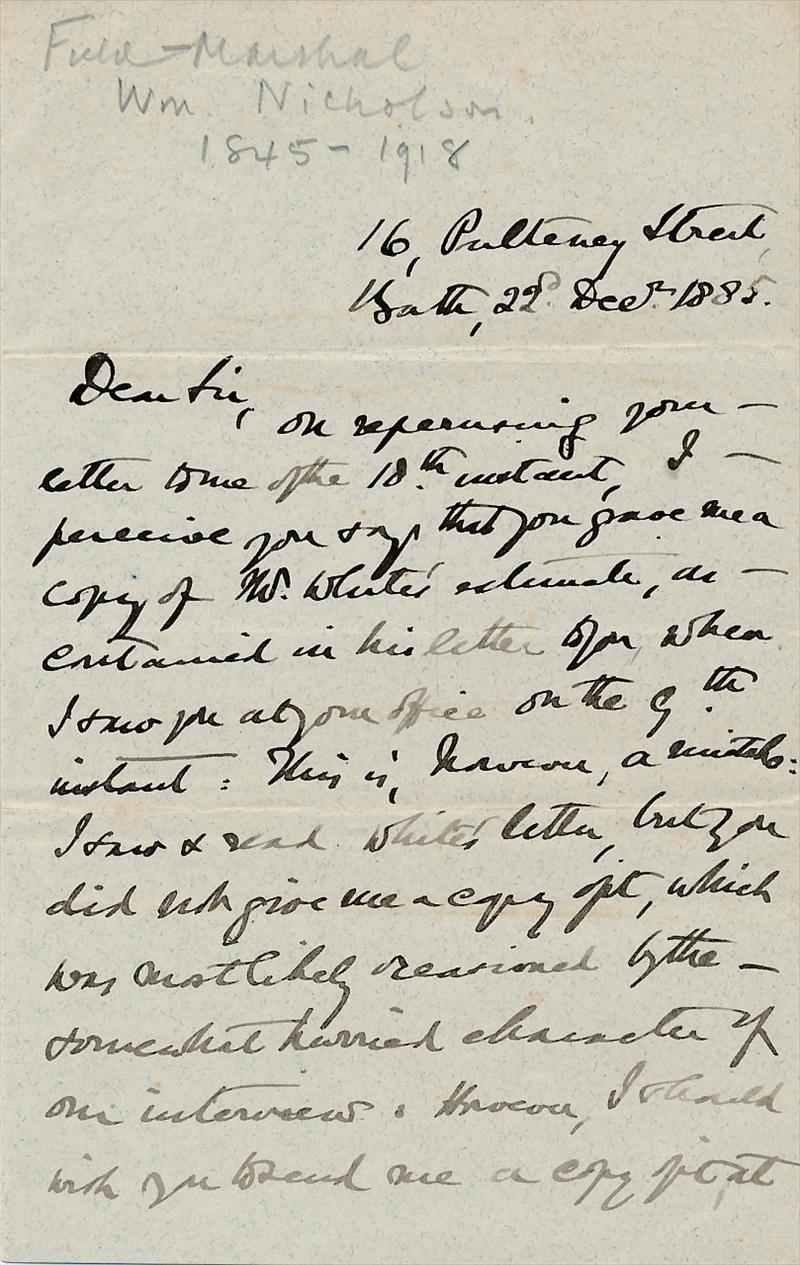 Field-Marshal
Wm. Nicholson.
1845-1918
16, Pulteney Street,
Bath, 22d. Decr. 1885.
Dear Sir,
on reperusing your —
letter to me of the 18th instant, I —
perceive you say that you gave me a
copy of Mr. White's estimate, as —
contained in his letter to you, when
I saw you at your office on the 9th
instant: This is, however, a mistake:
I saw & read White's letter, but you
did not give me a copy of it, which
was most likely occasioned by the —
somewhat hurried character of
our interview. However, I should
wish you to send me a copy of it, at